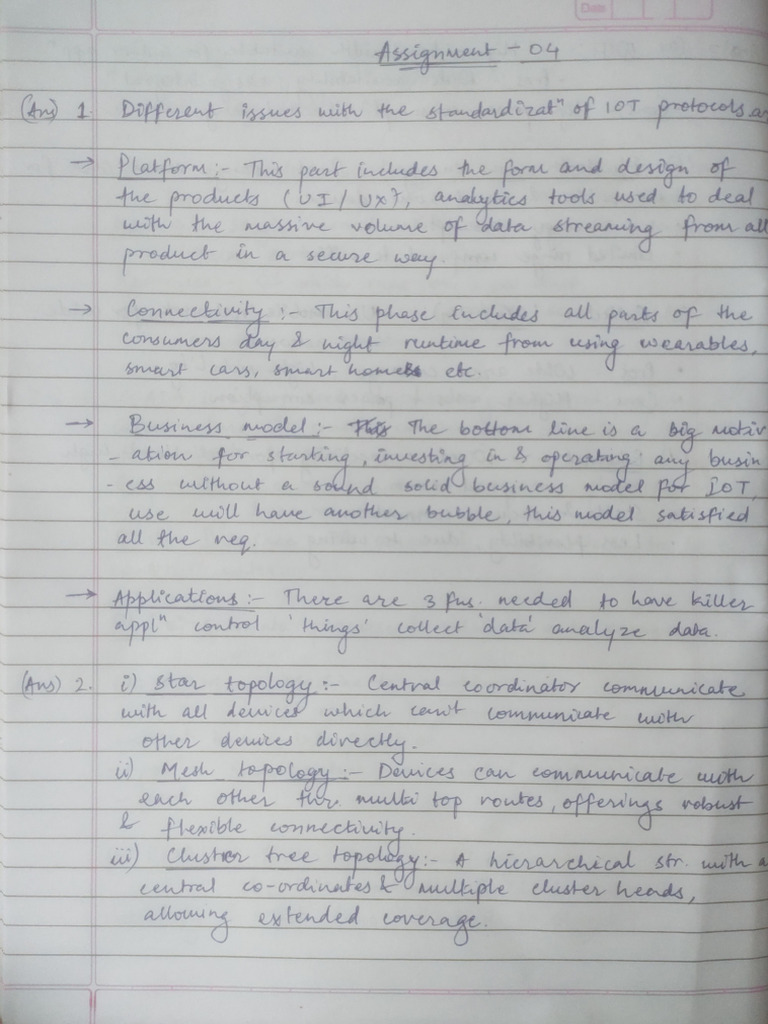 Date
Assignment - 04
(Ans) 1. Different issues with the standardizatⁿ of IOT protocols
→ Platform :- This part includes the form and design of
the products (UI/UX), analytics tools used to deal
with the massive volume of data streaming from all
product in a secure way.
→ Connectivity :- This phase includes all parts of the
consumers day & night runtime from using wearables,
smart cars, smart homes etc.
→ Business model :- The bottom line is a big motiv
- ation for starting, investing in & operating any busin
- ess without a sound solid business model for IOT,
use will have another bubble, this model satisfied
all the req.
→ Applications :- There are 3 fns. needed to have killer
applⁿ control 'things' collect 'data' analyze data.
(Ans) 2. i) Star topology :- Central coordinator communicate
with all devices which can't communicate with
other devices directly.
ii) Mesh topology :- Devices can communicate with
each other thr. multi top routes, offerings robust
& flexible connectivity.
iii) Cluster tree topology :- A hierarchical str. with a
central co-ordinates & multiple cluster heads,
allowing extended coverage.